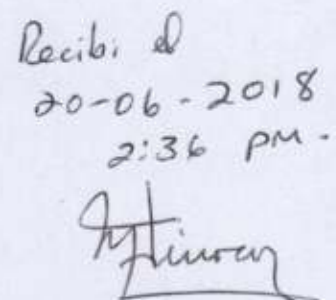 Recibi el
20-06-2018
2:36 pm.